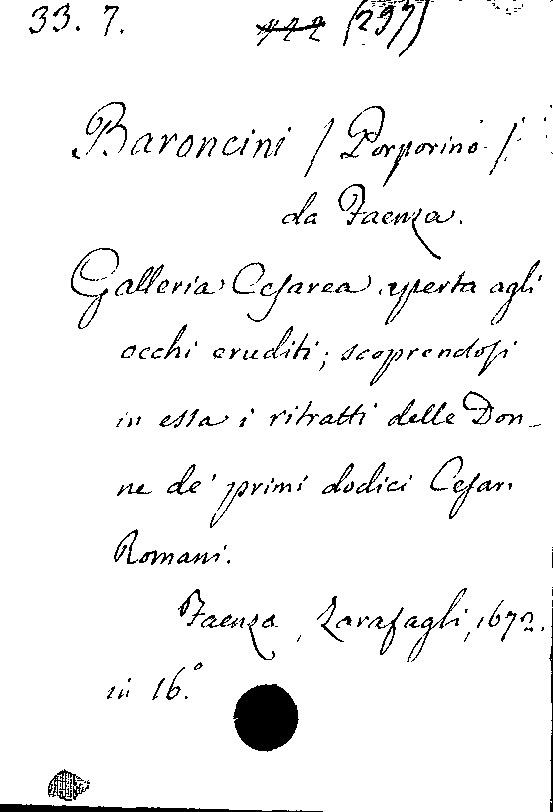 33. 7. 722 (297)
Baroncini / Porporino /
da Faenza.
Galleria Cesarea aperta agli
occhi eruditi; scoprendosi
in essa i ritratti delle Don-
ne de' primi dodici Cesari
Romani.
Faenza, Zarafagli, 1672.
in 16.°